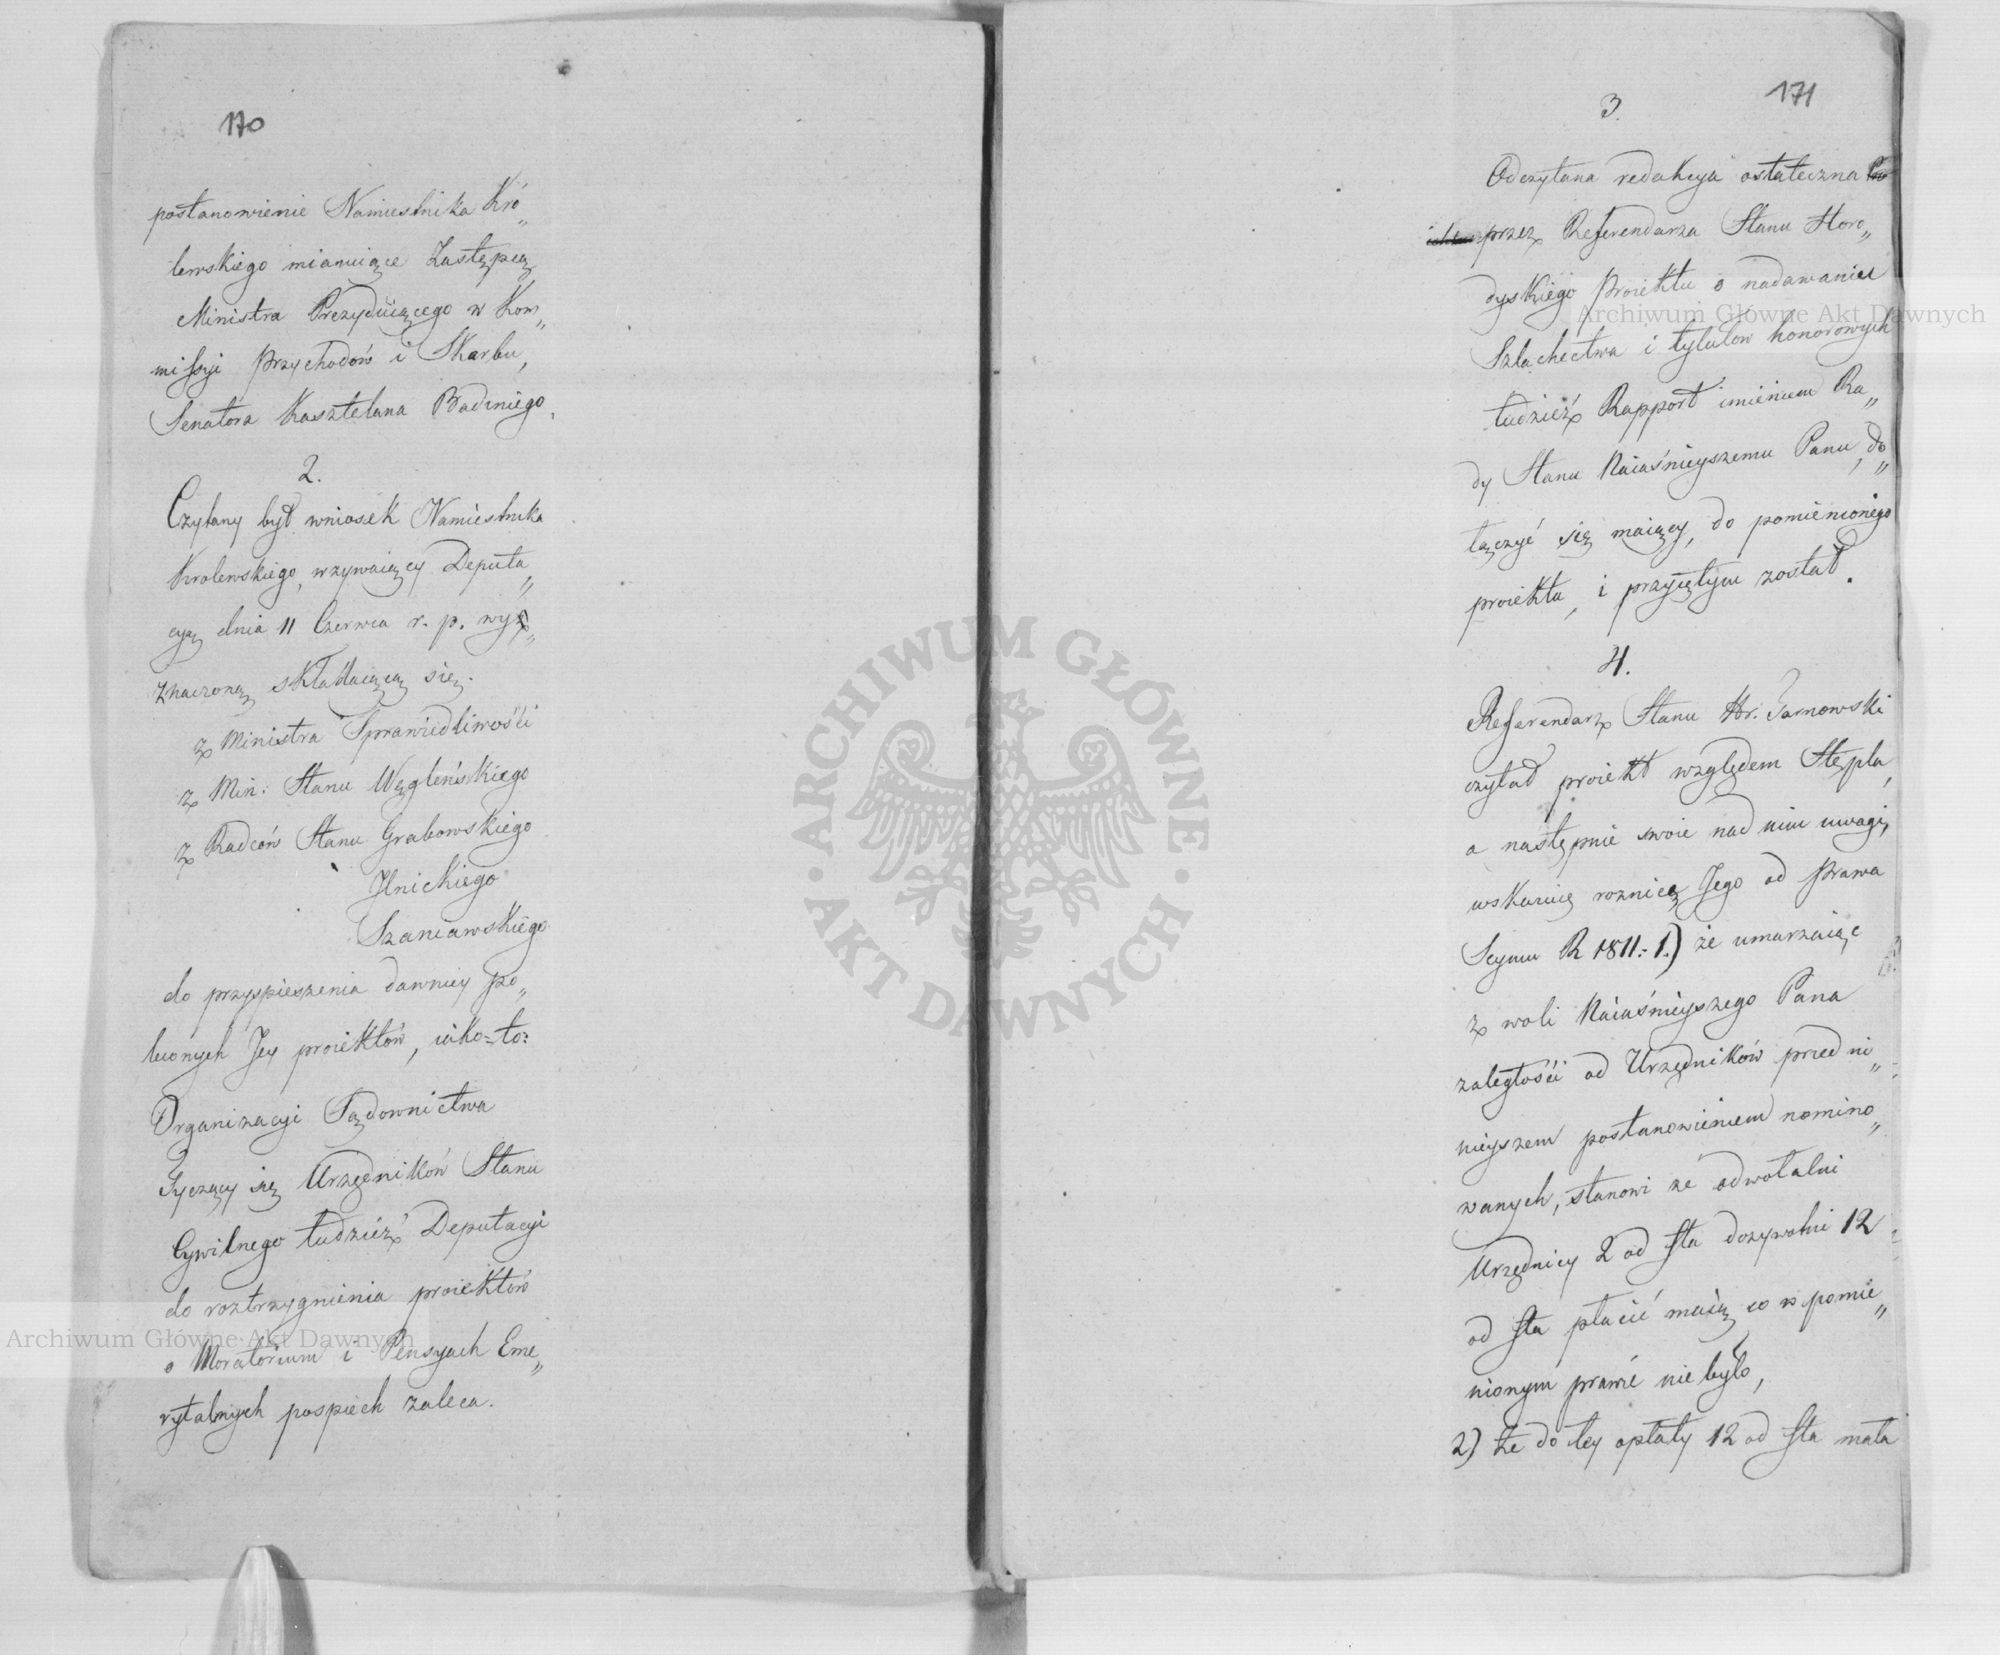 170
postanowienie Namiestnika Kró„
lewskiego mianuiące Zastępcą
Ministra Prezyduiącego w Kom„
missyi Przychodów i Skarbu,
Senatora Kasztelana Badeniego.
2.
Czytany był wniosek Namiestnika
Krolewskiego, wzywaiący Deputa„
cyą dnia 11 Czerwca r. p. wy„
znaczoną składaiącą się.
z Ministra Sprawiedliwości
z Min: Stanu Węgleńskiego
z Radców Stanu Grabowskiego
Ilnickiego
Szaniawskiego
do przyspieszenia dawniey po„
leconych Jey proiektów, iako=to=
Organizacyi Sądownictwa
Tyczący się Urzędników Stanu
Cywilnego tudzież Deputacyi
do roztrzygnienia proiektów
o Moratorium i Pensyach Eme„
rytalnych pospiech zaleca.
171
3.
Odczytana redakcya ostateczna
przez Referendarza Stanu Horo„
dyskiego Proiektu o nadawaniu
Szlachectwa i tytulow honorowych
tudzież Rapport imieniem Ra„
dy Stanu Naiaśnieyszemu Panu, do„
łączyć się maiący, do pomienionego
proiektu, i przyiętym został.
4.
Referendarz Stanu Hr. Tarnowski
czytał proiekt względem Stępla,
a następnie swoie nad nim uwagi,
wskazuię roznicę Jego od Prawa
Seymu R 1811:- 1.) że umarzaiąc
z woli Naiaśnieyszego Pana
zaległości od Urzędników przed ni„
nieyszem postanowieniem nomino„
wanych, stanowi że odwołalni
Urzędnicy 2 od sta dozywotni 12
od sta płacić maią co w pomie„
nionym prawie nie było,
2) że do tey opłaty 12 od sta mała
Archiwum Główne Akt Dawnych
Archiwum Główne Akt Dawnych
ARCHIWUM GŁÓWNE · AKT DAWNYCH ·